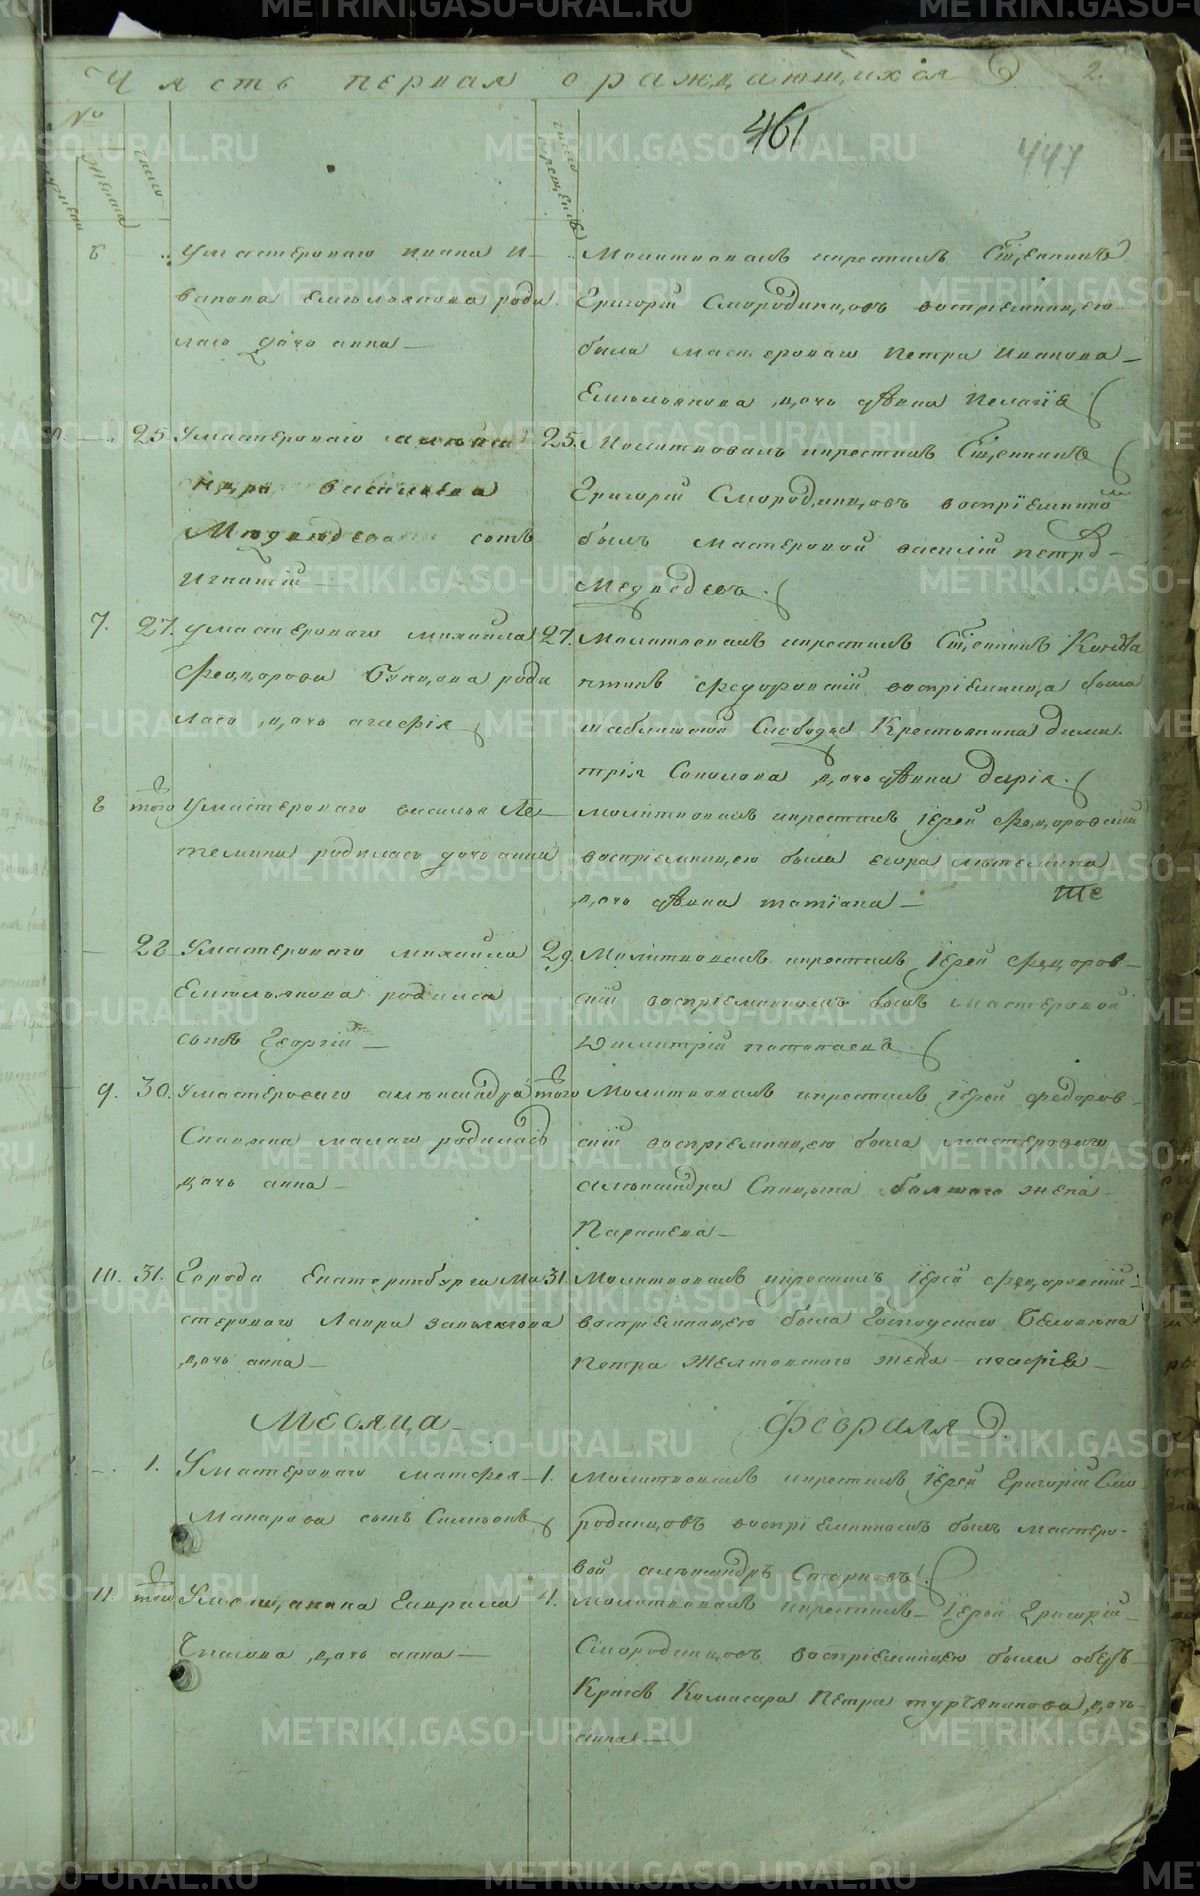 Часть первая о раждающихся
2.
461
447
№
число
число крещенiя
женска
6
У мастероваго ивана и-
ванова Емельянова роди
лась дочь анна
Молитвовалъ икрестилъ Сщ,енникъ
Григорiй Смородинцовъ воспрiемницею
была мастероваго петра иванова
Емельянова дочь дѣвка пелагiя
25
У мастероваго алекса
ндра василiева
Медведева сынъ
игнатiй
25.
Молитвовалъ икрестилъ Сщ,енникъ
Григорiй Смородинцовъ воспрiемнико
былъ мастеровой василiй петро
Медведевъ.
7.
27.
у мастероваго михаила
Федорова роди
лась дочь агафiя
27.
Молитвовалъ икрестилъ Сщ,енникъ Конста
нтинъ Федоровскiй воспрiемница была
Слободы Крестьянина дими
трiя Соколова дочь дѣвка дарiя.
8
того
У мастероваго василья Ле
темина родилась дочь анна
молитвовалъ икрестилъ Iерей Федоровскiй
воспрiемницею была егора летемина
дочь дѣвка татiана
28
У мастероваго михаила
Емельянова родился
сынъ Георгiй
29.
Молитвовалъ икрестилъ Iерей Федоров-
скiй воспрiемникомъ былъ мастеровой
Димитрiй потопаевъ.
9.
30.
У мастероваго александра
Спицына малаго родилась
дочь анна
того
Молитвовалъ икрестилъ Iерей Федоров-
скiй воспрiемницею была мастероваго
александра Спицына большого жена
Парасева
10.
31.
Города Екатеринбурга Ма
стероваго Лавра
дочь анна
31
Молитвовалъ икрестилъ Iерей Федоровскiй
воспрiемницею была Господскаго Человека
петра Желтовскаго жена агафiя
Месяца
Февраля
1.
У мастероваго матфея
Макарова сынъ Симеонъ
1.
молитвовалъ икрестилъ Iерей Григорiй Смо
родинцовъ воспрiемникомъ былъ мастеро-
вой александръ Старковъ.
11.
того
У мещанина Гаврила
дочь анна
4.
молитвовалъ икрестилъ Iерей Григорiй
Смородинцовъ воспрiемницею была оберъ
Кригсъ Комисара Петра турчанинова дочь
анна